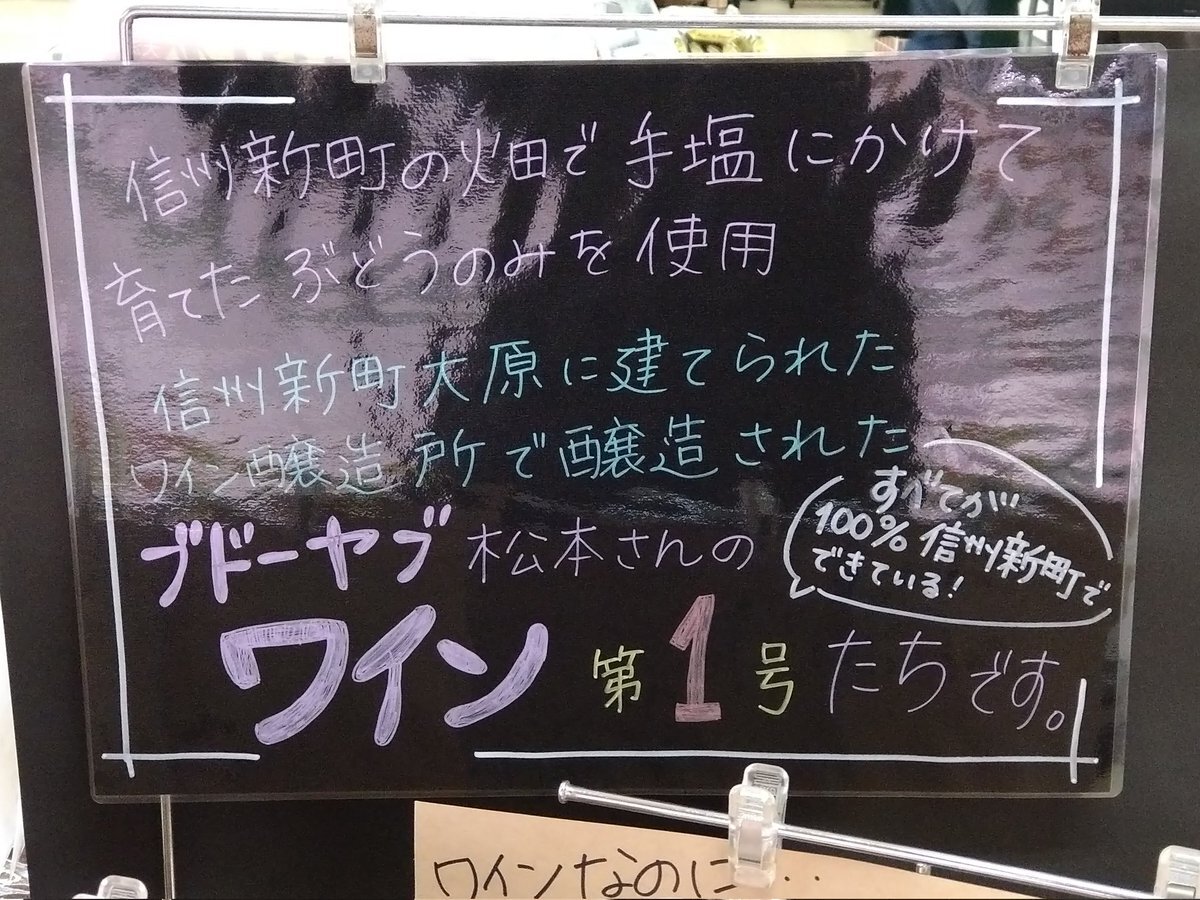 信州新町の畑で手塩にかけて
育てたぶどうのみを使用
信州新町大原に建てられた
ワイン醸造所で醸造された
ブドーヤブ松本さんの
すべてが
100%信州新町で
できている!
ワイン第1号たちです。
ワインなのに…